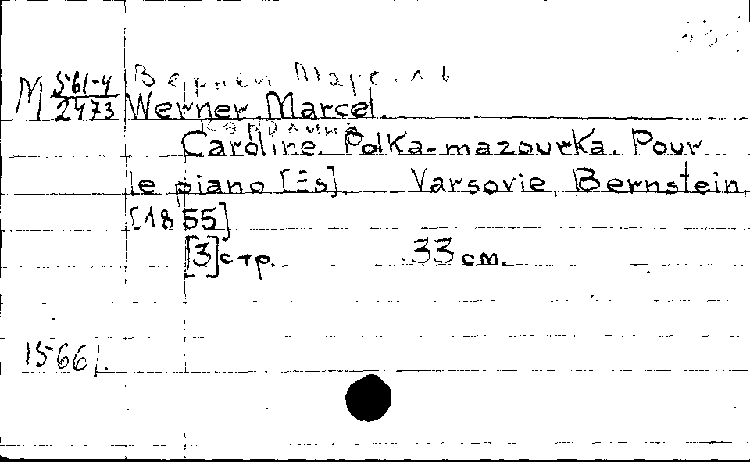 М 561-4/2473
Вернер Марсель
Werner Marcel.
Каролина
Caroline. Polka-mazourka. Pour
le piano [Es]. Varsovie, Bernstein,
[1855]
[3] стр. 33 см.
1566